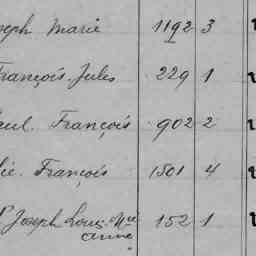 seph Marie 1192 3
François Jules 229 1
aul François 902 2
lie François 1501 4
Joseph Louis Mie 152 1
anne